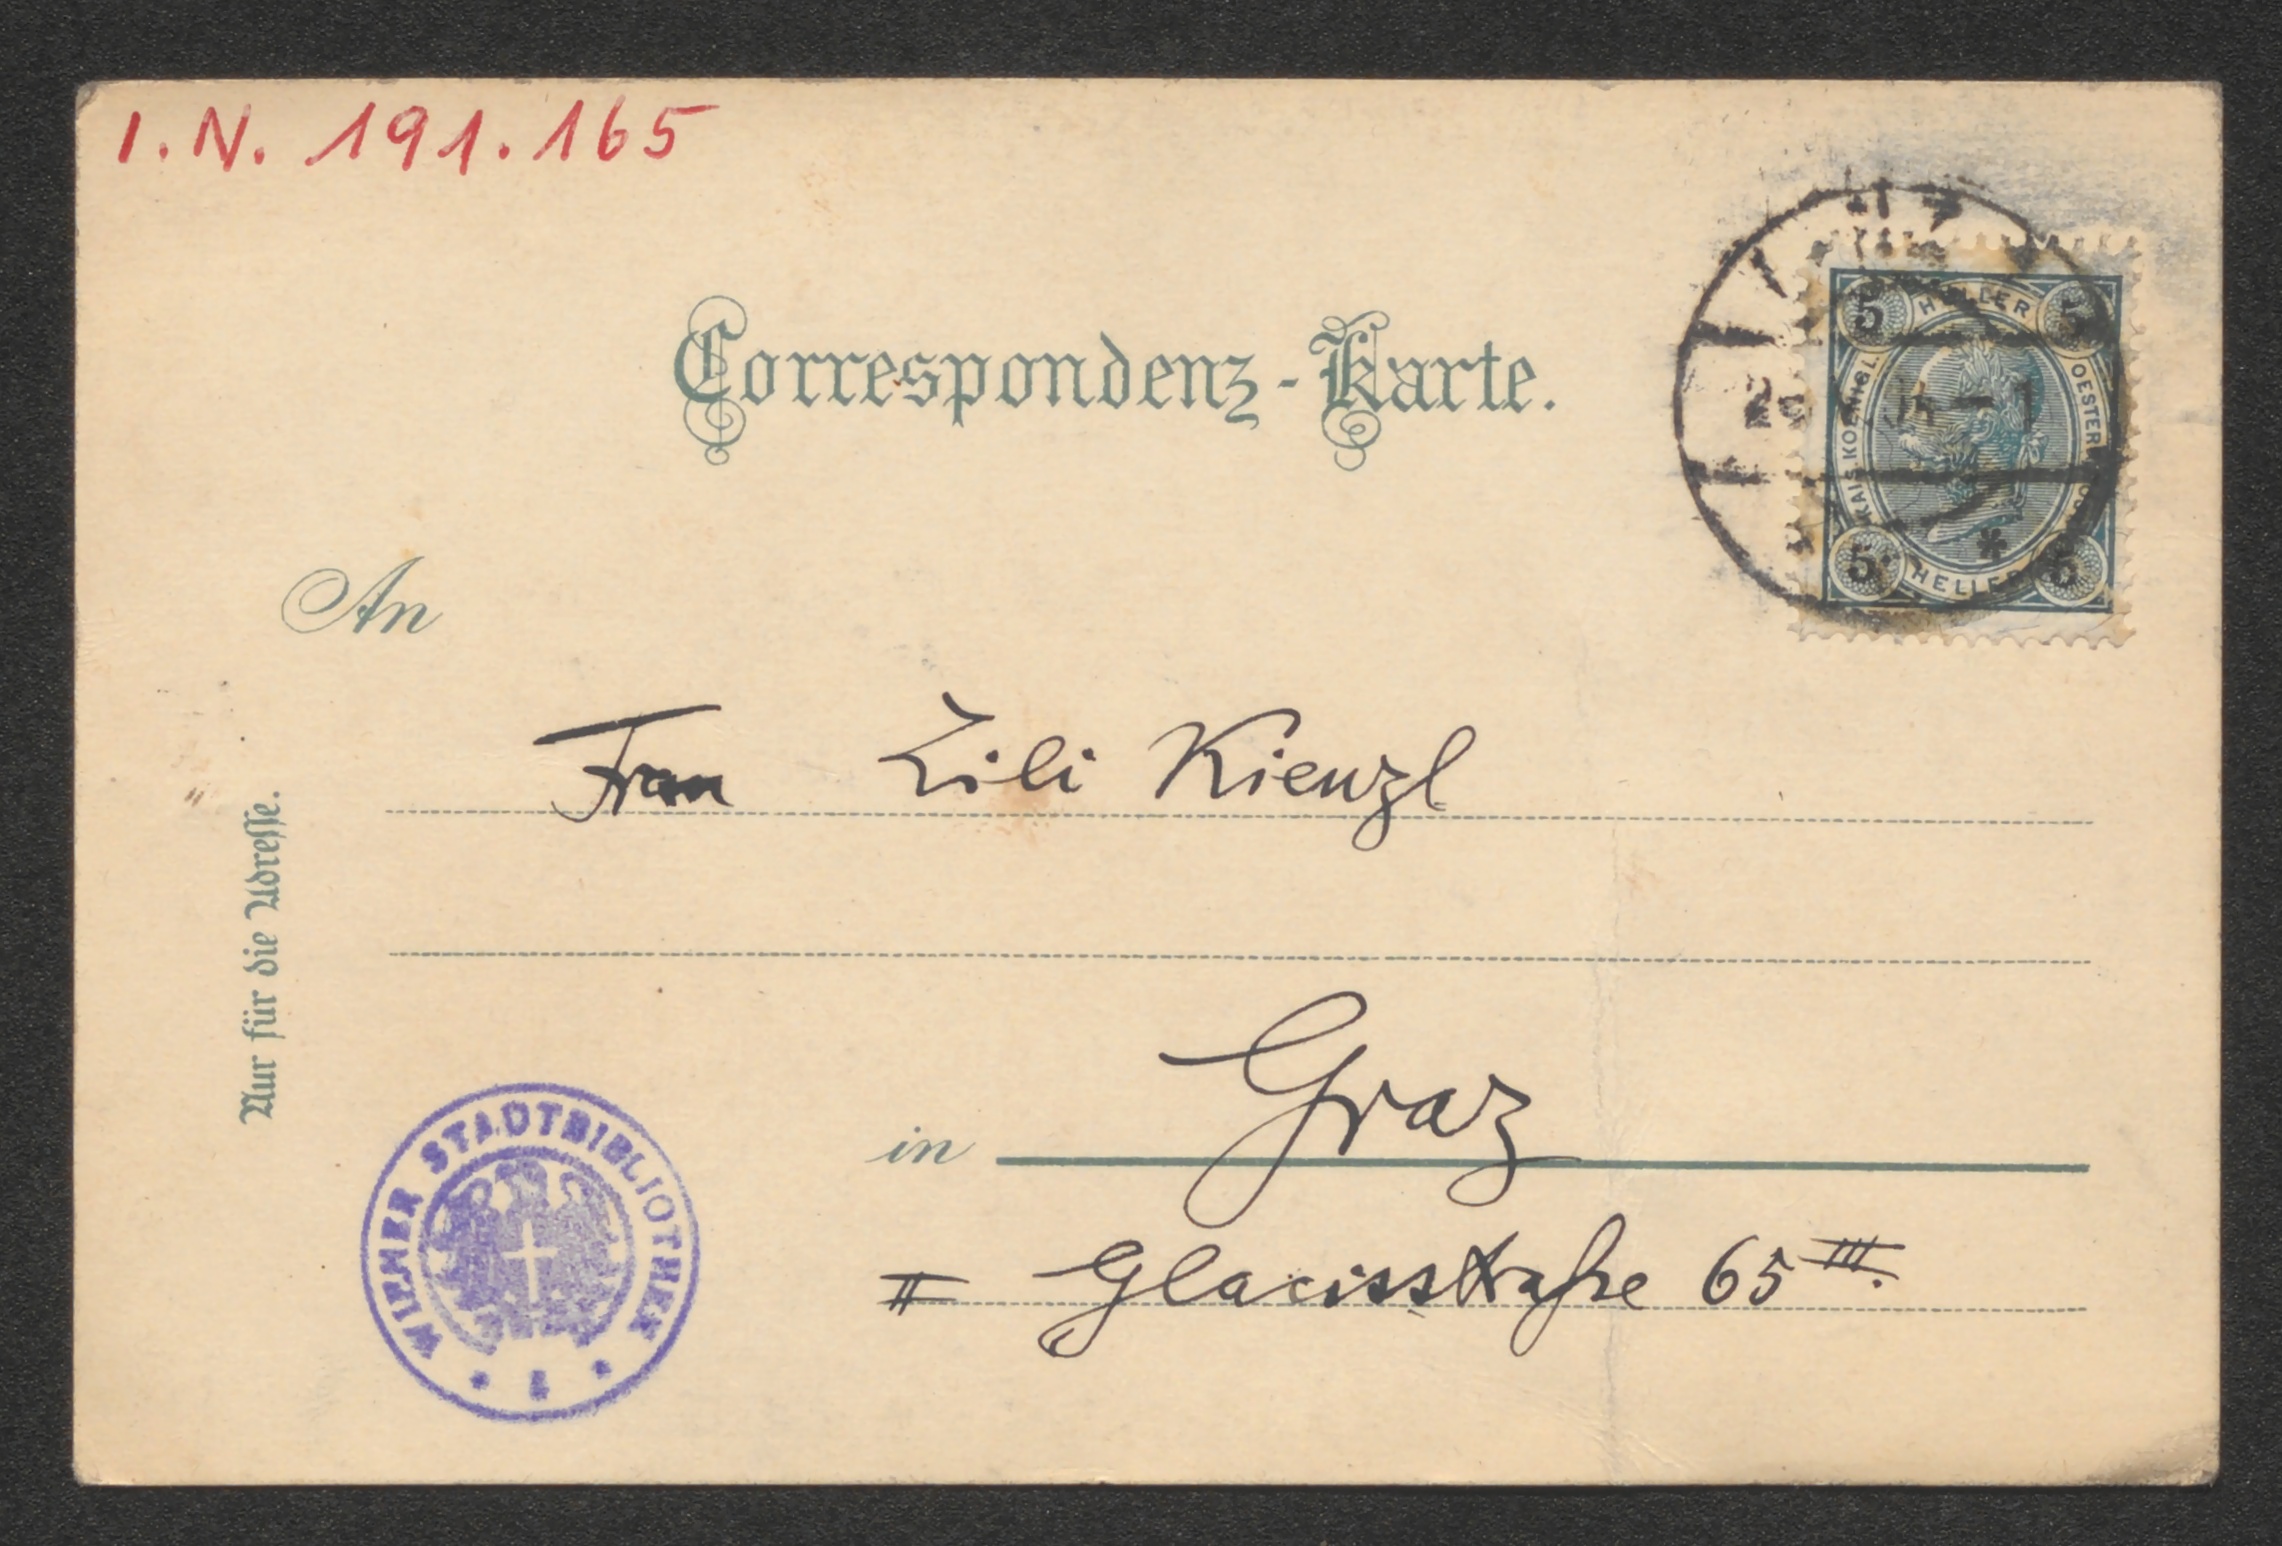 I.N. 191.165
Correspondenz-Karte.
5 HELLER 5
KAIS. KOENIGL.
OESTERR.
5 HELLER 5
An
Frau Lili Kienzl
Nur für die Adresse.
in Graz
II Glacisstraße 65 III.
WIENER STADTBIBLIOTHEK